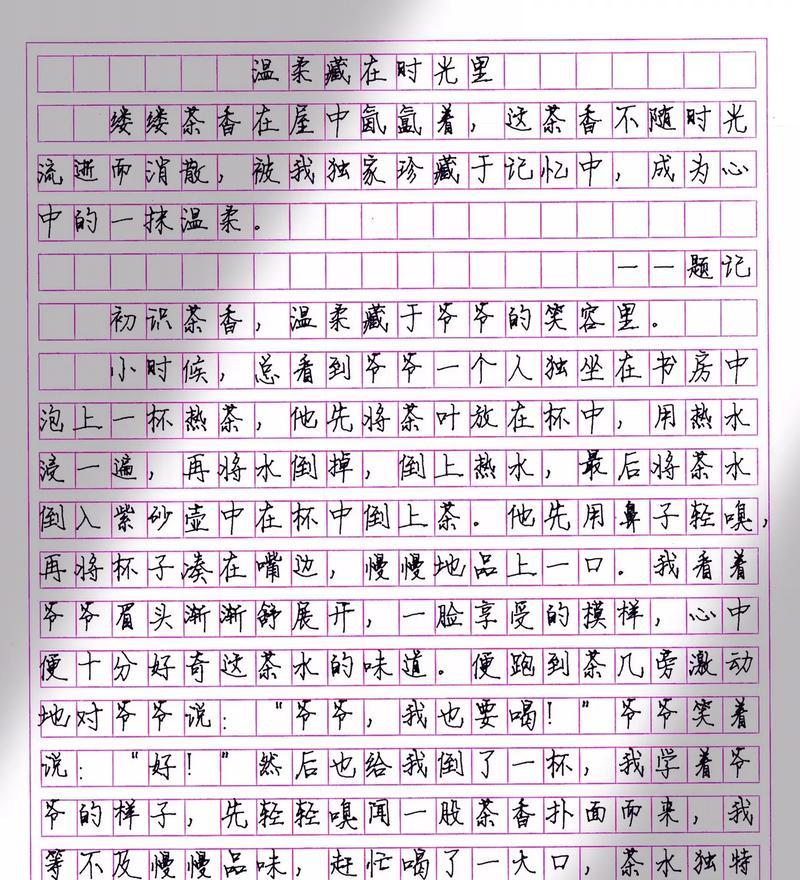 温柔藏在时光里
缕缕茶香在屋中氤氲着，这茶香不随时光
流逝而消散，被我独家珍藏于记忆中，成为心
中的一抹温柔。
——题记
初识茶香，温柔藏于爷爷的笑容里。
小时候，总看到爷爷一个人独坐在书房中
泡上一杯热茶，他先将茶叶放在杯中，用热水
浸一遍，再将水倒掉，倒上热水，最后将茶水
倒入紫砂壶中在杯中倒上茶。他先用鼻子轻嗅，
再将杯子凑在嘴边，慢慢地品上一口。我看着
爷爷眉头渐渐舒展开，一脸享受的摸样，心中
便十分好奇这茶水的味道。便跑到茶几旁激动
地对爷爷说：“爷爷，我也要喝！”爷爷笑着
说：“好！”然后也给我倒了一杯，我学着爷
爷的样子，先轻轻嗅闻一股茶香扑面而来，我
等不及慢慢品味，赶忙喝了一大口，茶水独特